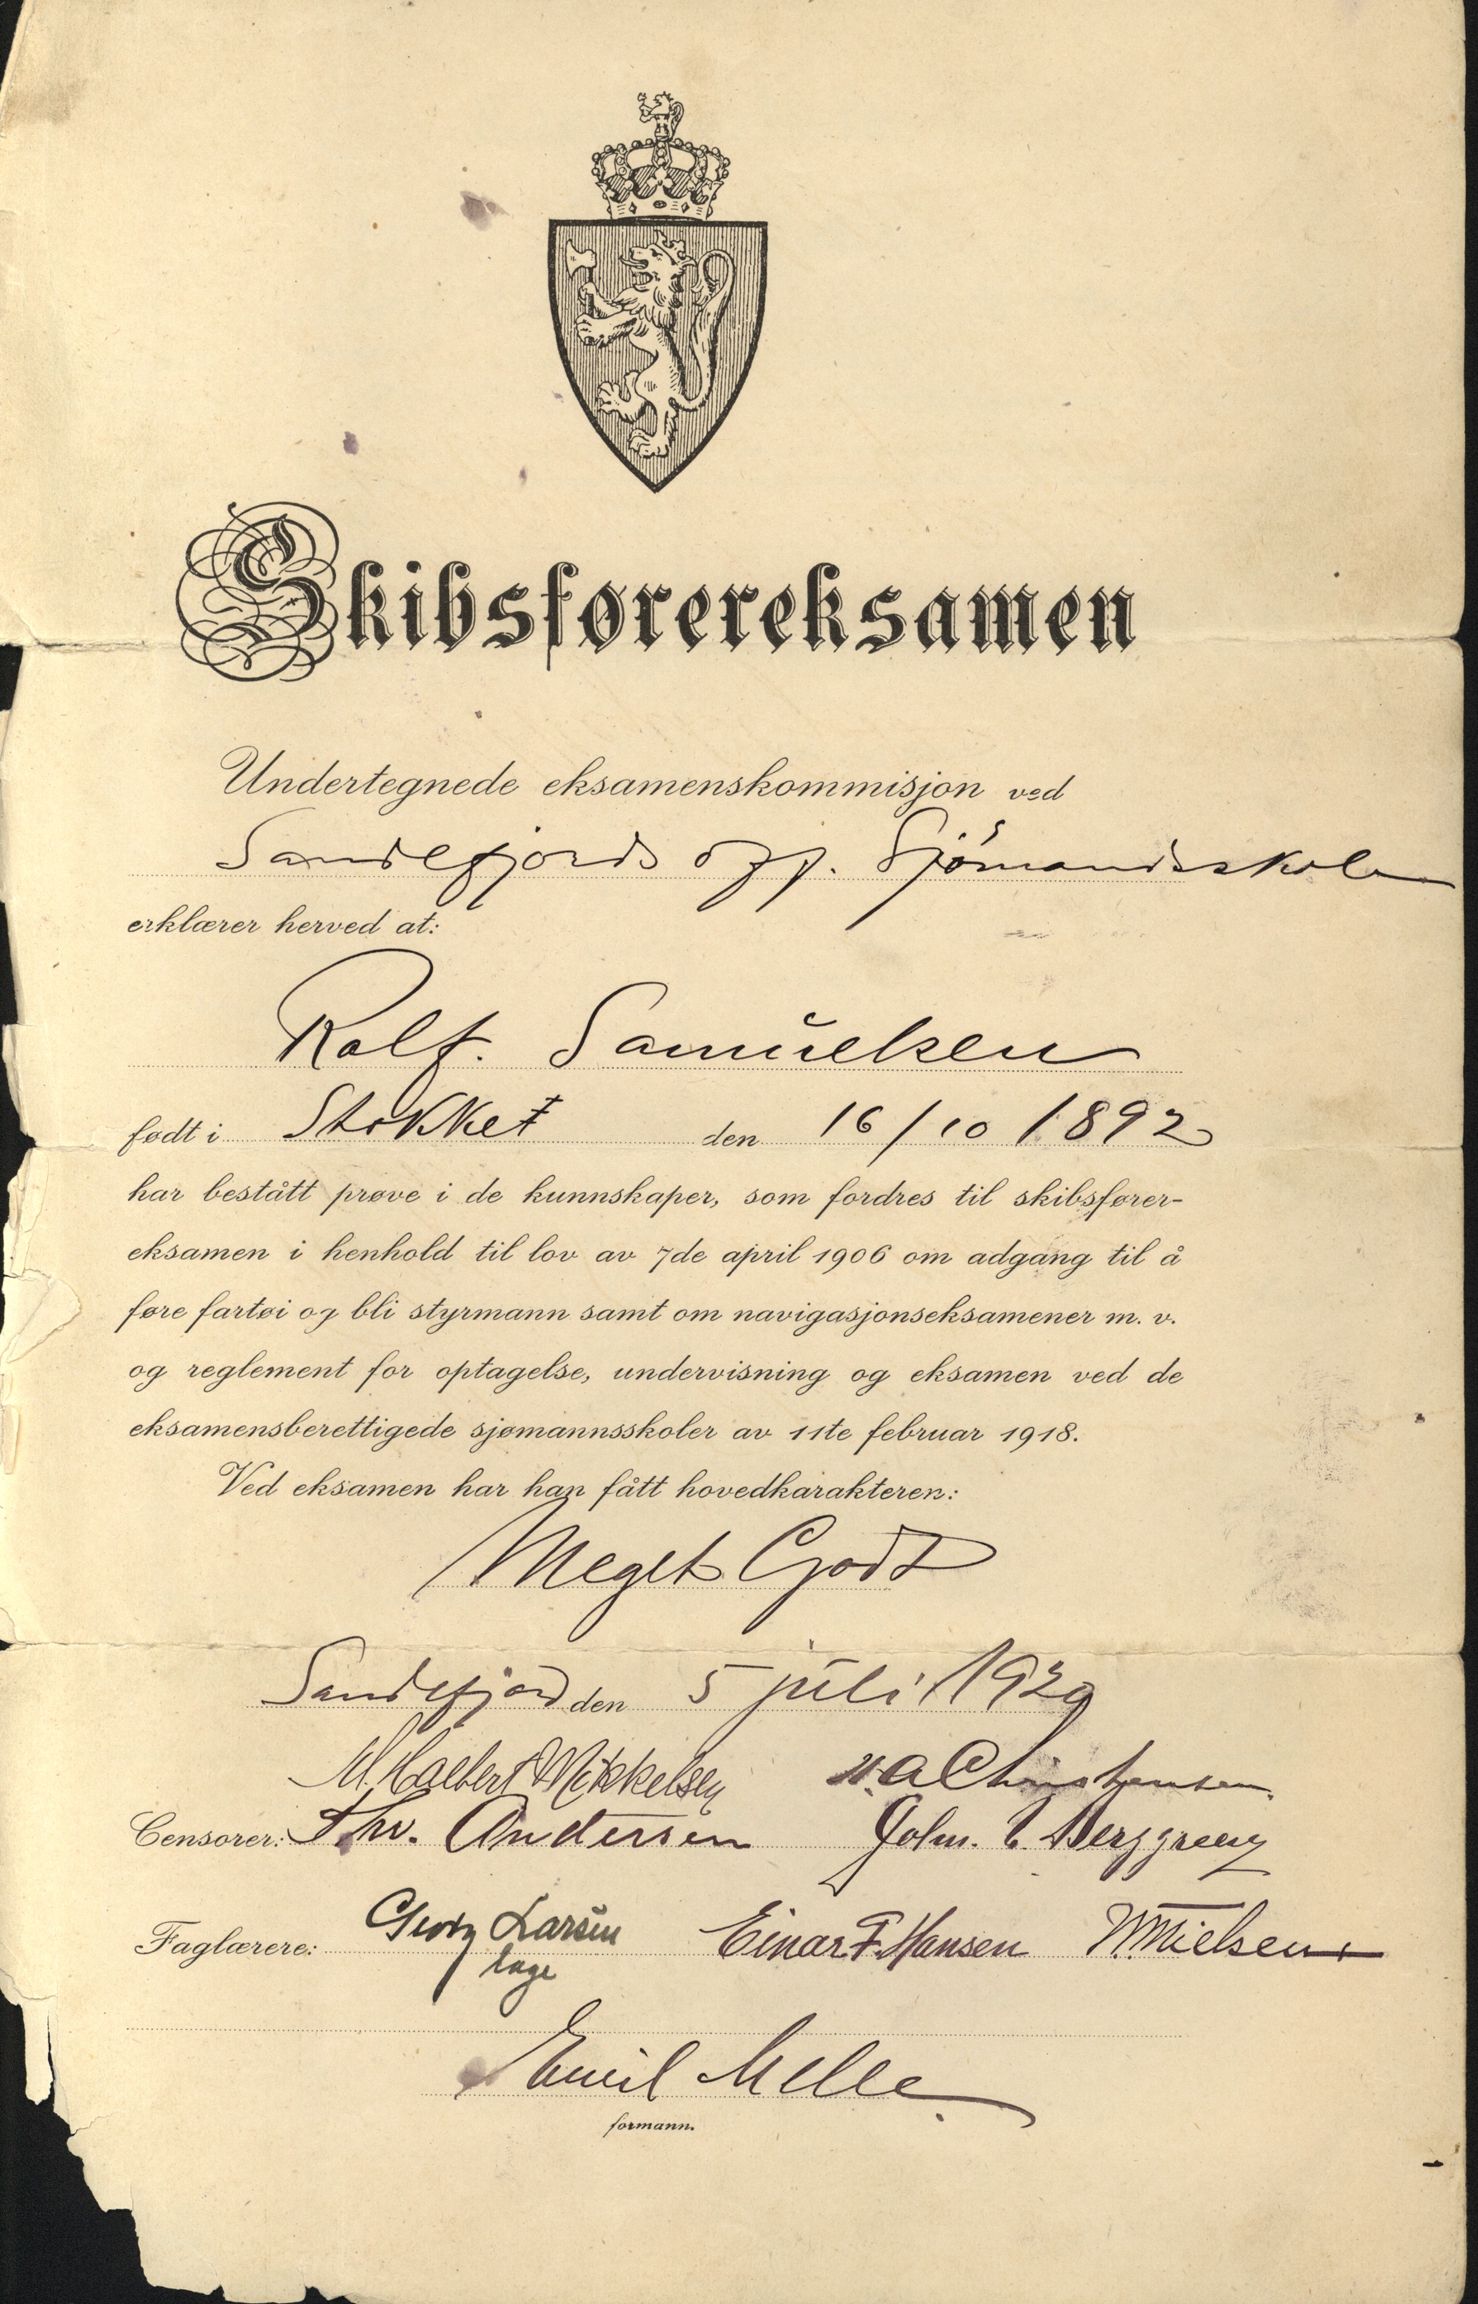 Skibsførereksamen
Undertegnede eksamenskommisjon ved
Sandefjords off. Sjömandsskole
erklærer herved at:
Rolf. Samuelsen
født i Stokket den 16/10 1892
har bestått prøve i de kunnskaper, som fordres til skibsfører-
eksamen i henhold til lov av 7de april 1906 om adgang til å
føre fartøi og bli styrmann samt om navigasjonseksamener m. v.
og reglement for optagelse, undervisning og eksamen ved de
eksamensberettigede sjømannsskoler av 11te februar 1918.
Ved eksamen har han fått hovedkarakteren:
Meget Godt
Sandefjord den 5 juli 1929
Mikkelsen A Christensen
Censorer: Thv. Andersen John. Berggreen
Faglærere: Georg Larsen Einar F. Hansen W. Nielsen
læge
Emil Melle
formann.